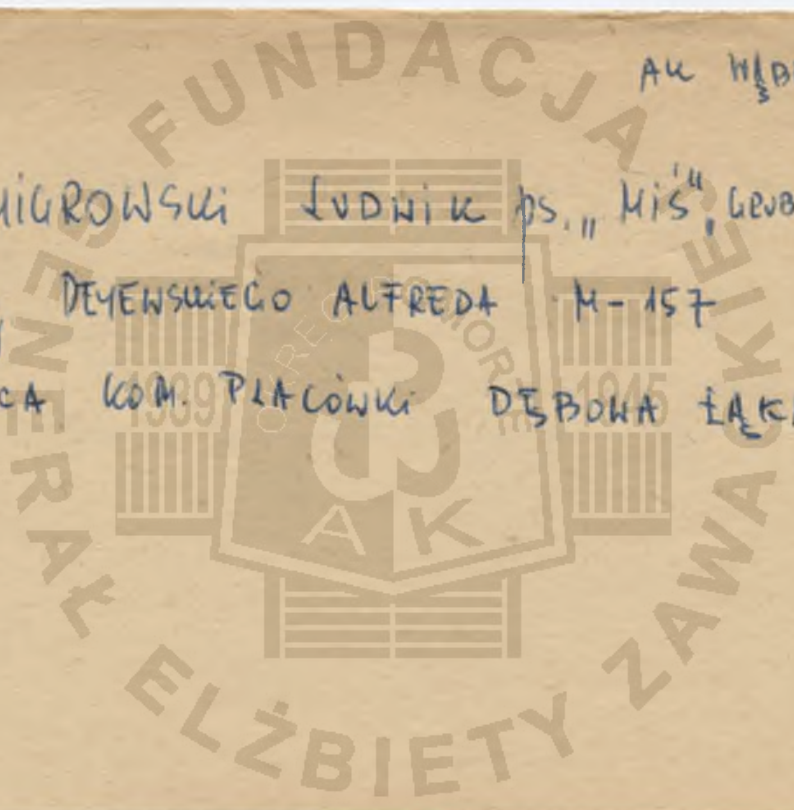 AK WĄB
MIGROWSKI LUDWIK ps. „MIŚ”, GRUB
DEYEWSKIEGO ALFREDA M-157
CA KOM. PLACÓWKI DĘBOWA ŁĄK
FUNDACJA GENERAŁ ELŻBIETY ZAWACKIEJ
1939 1945
AK